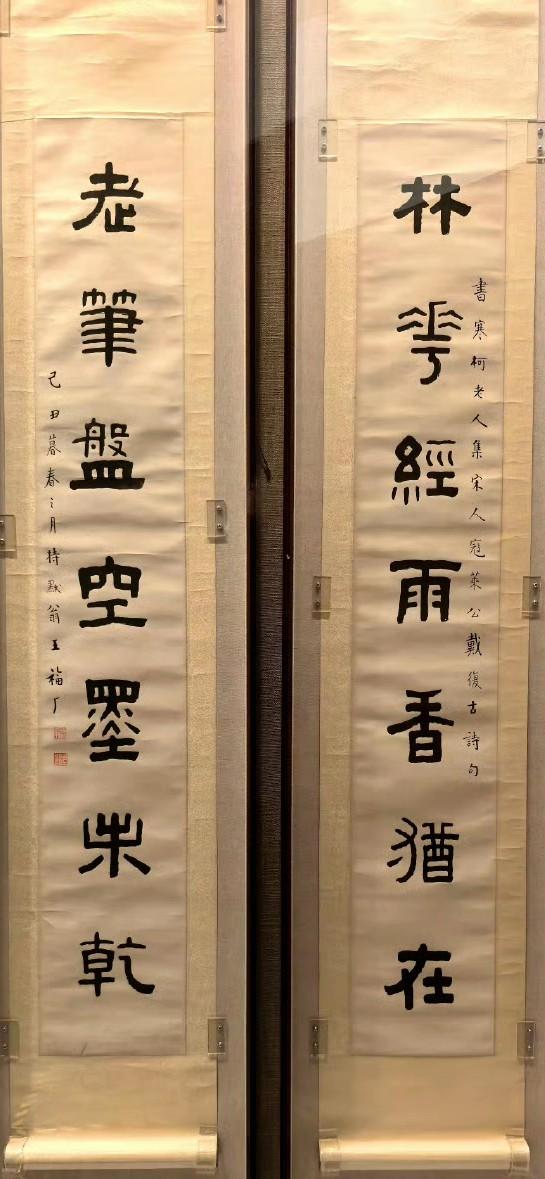 林華經雨香猶在
書寒柯老人集宋人寇萊公戴復古詩句
老筆盤空墨未乾
己丑暮春之月持默翁王福厂